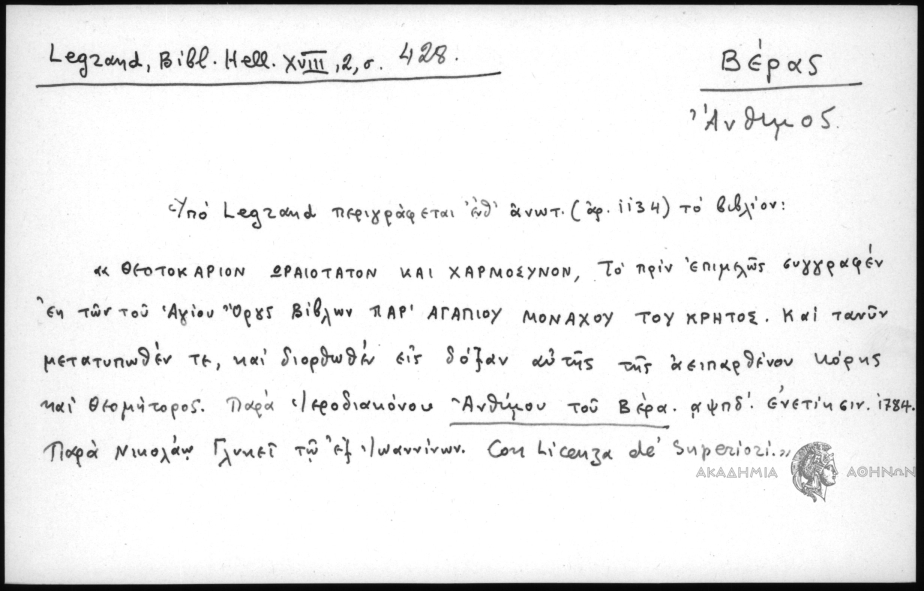 Legrand, Bibl. Hell. XVIII, 2, σ. 428.
Βέρας
Ἄνθιμος.
Ὑπό Legrand περιγράφεται ἐνθ' ἄνωτ. (ἀρ. 1134) τό βιβλίον:
«ΘΕΟΤΟΚΑΡΙΟΝ ΩΡΑΙΟΤΑΤΟΝ ΚΑΙ ΧΑΡΜΟΣΥΝΟΝ, Τό πρίν ἐπιμελῶς συγγραφέν
ἐκ τῶν τοῦ Ἁγίου Ὄρους Βίβλων ΠΑΡ' ΑΓΑΠΙΟΥ ΜΟΝΑΧΟΥ ΤΟΥ ΚΡΗΤΟΣ. Καί τανῦν
μετατυπωθέν τε, καί διορθωθέν εἰς δόξαν αὐτῆς τῆς ἀειπαρθένου κόρης
καί Θεομήτορος. Παρά Ἱεροδιακόνου Ἀνθίμου τοῦ Βέρα. ͵αψπδ΄. Ἐνετίησιν. 1784.
Παρά Νικολάῳ Γλυκεῖ τῷ ἐξ Ἰωαννίνων. Con Licenza de' Superiori.»
ΑΚΑΔΗΜΙΑ ΑΘΗΝΩΝ